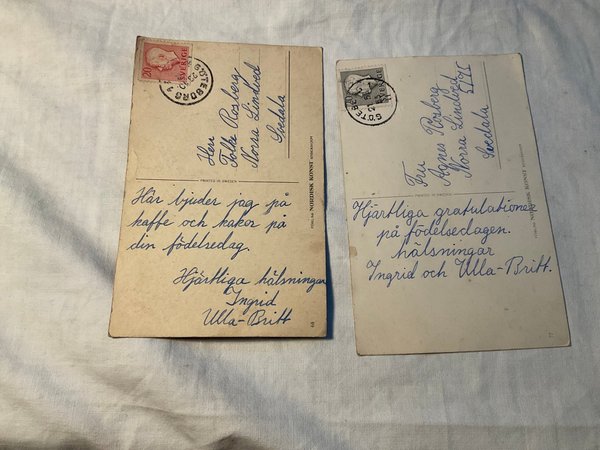 20
SVERIGE
GÖTEBORG
Herr
Folke Rosberg
Norra Lindved
Svedala
PRINTED IN SWEDEN
FÖRLAG NORDISK KONST STOCKHOLM
Här bjuder jag på
kaffe och kakor på
din födelsedag.
Hjärtliga hälsningar
Ingrid
Ulla-Britt
SVERIGE
GÖTEBORG
Fru
Agnes Rosberg
Norra Lindved
Svedala
PRINTED IN SWEDEN
FÖRLAG NORDISK KONST STOCKHOLM
Hjärtliga gratulationer
på födelsedagen.
hälsningar
Ingrid och Ulla-Britt.